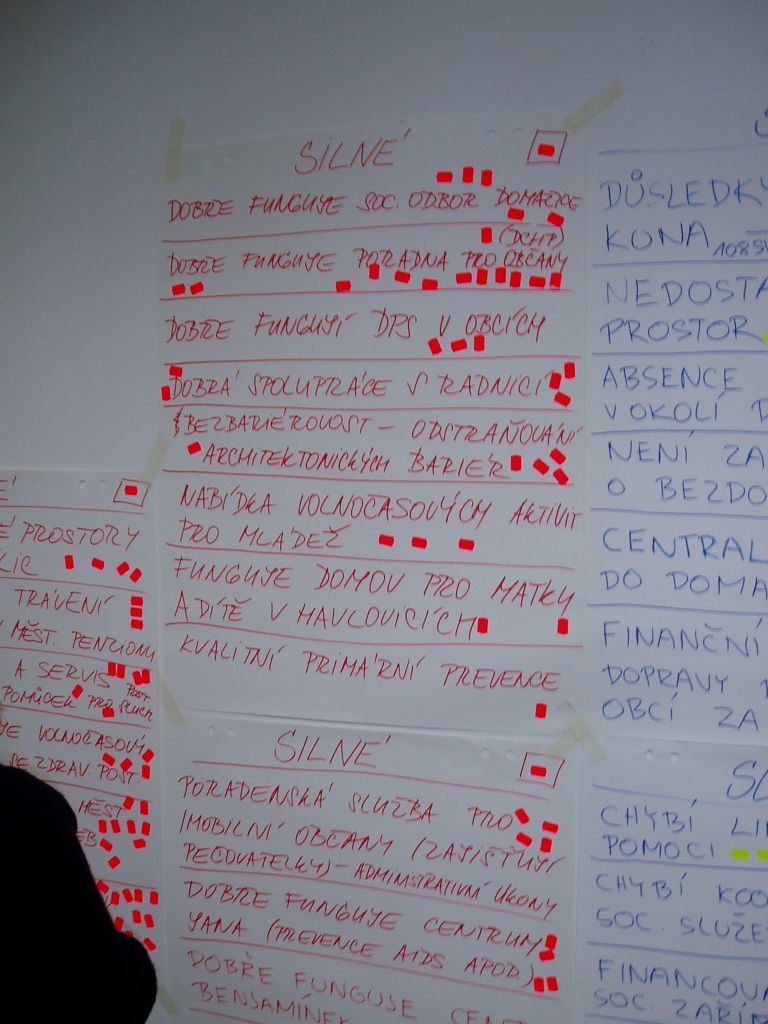 SILNÉ
DOBŘE FUNGUJE SOC. ODBOR DOMAŽLICE
(DCHP)
DOBŘE FUNGUJE PORADNA PRO OBČANY
DOBŘE FUNGUJÍ DPS V OBCÍCH
DOBRÁ SPOLUPRÁCE S RADNICÍ
BEZBARIÉROVOST – ODSTRAŇOVÁNÍ
ARCHITEKTONICKÝCH BARIÉR
NABÍDKA VOLNOČASOVÝCH AKTIVIT
PRO MLÁDEŽ
FUNGUJE DOMOV PRO MATKY
A DÍTĚ V HAVLOVICÍCH
KVALITNÍ PRIMÁRNÍ PREVENCE
SILNÉ
PORADENSKÁ SLUŽBA PRO
IMOBILNÍ OBČANY (ZAJIŠŤUJÍ
PEČOVATELKY) – ADMINISTRATIVNÍ ÚKONY
DOBŘE FUNGUJE CENTRUM
JANA (PREVENCE AIDS APOD.)
DOBŘE FUNGUJE CENT
BENJAMÍNEK
É
É PROSTORY
TRÁVENÍ
MĚST. PENZIONU
A SERVIS
POMŮCEK PRO SLUCH. POST.
JE VOLNOČASOVÝ
SE ZDRAV. POST.
MĚST
EB
S
DŮSLEDKY
KONA 108
NEDOSTA
PROSTOR
ABSENCE
V OKOLÍ D
NENÍ ZA
O BEZDO
CENTRAL
DO DOMA
FINANČNÍ
DOPRAVY
OBCÍ ZA
SL
CHYBÍ LI
POMOCI
CHYBÍ KOO
SOC. SLUŽE
FINANCOVÁ
SOC. ZAŘÍ